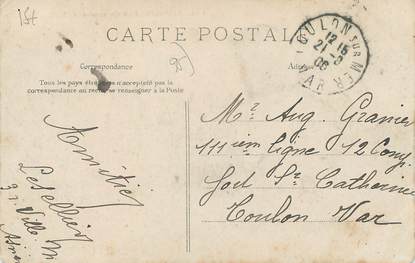 1St
92
CARTE POSTALE
Correspondance
Adresse
Tous les pays étrangers n'acceptent pas la
correspondance au recto, se renseigner à la Poste
TOULON SUR MER
12 15
21 -8
06
VAR
Mr. Aug. Granier
111ième ligne 12 Comp.
fort Ste Catherine
Toulon Var
Amitiés
Lesellier
Ville